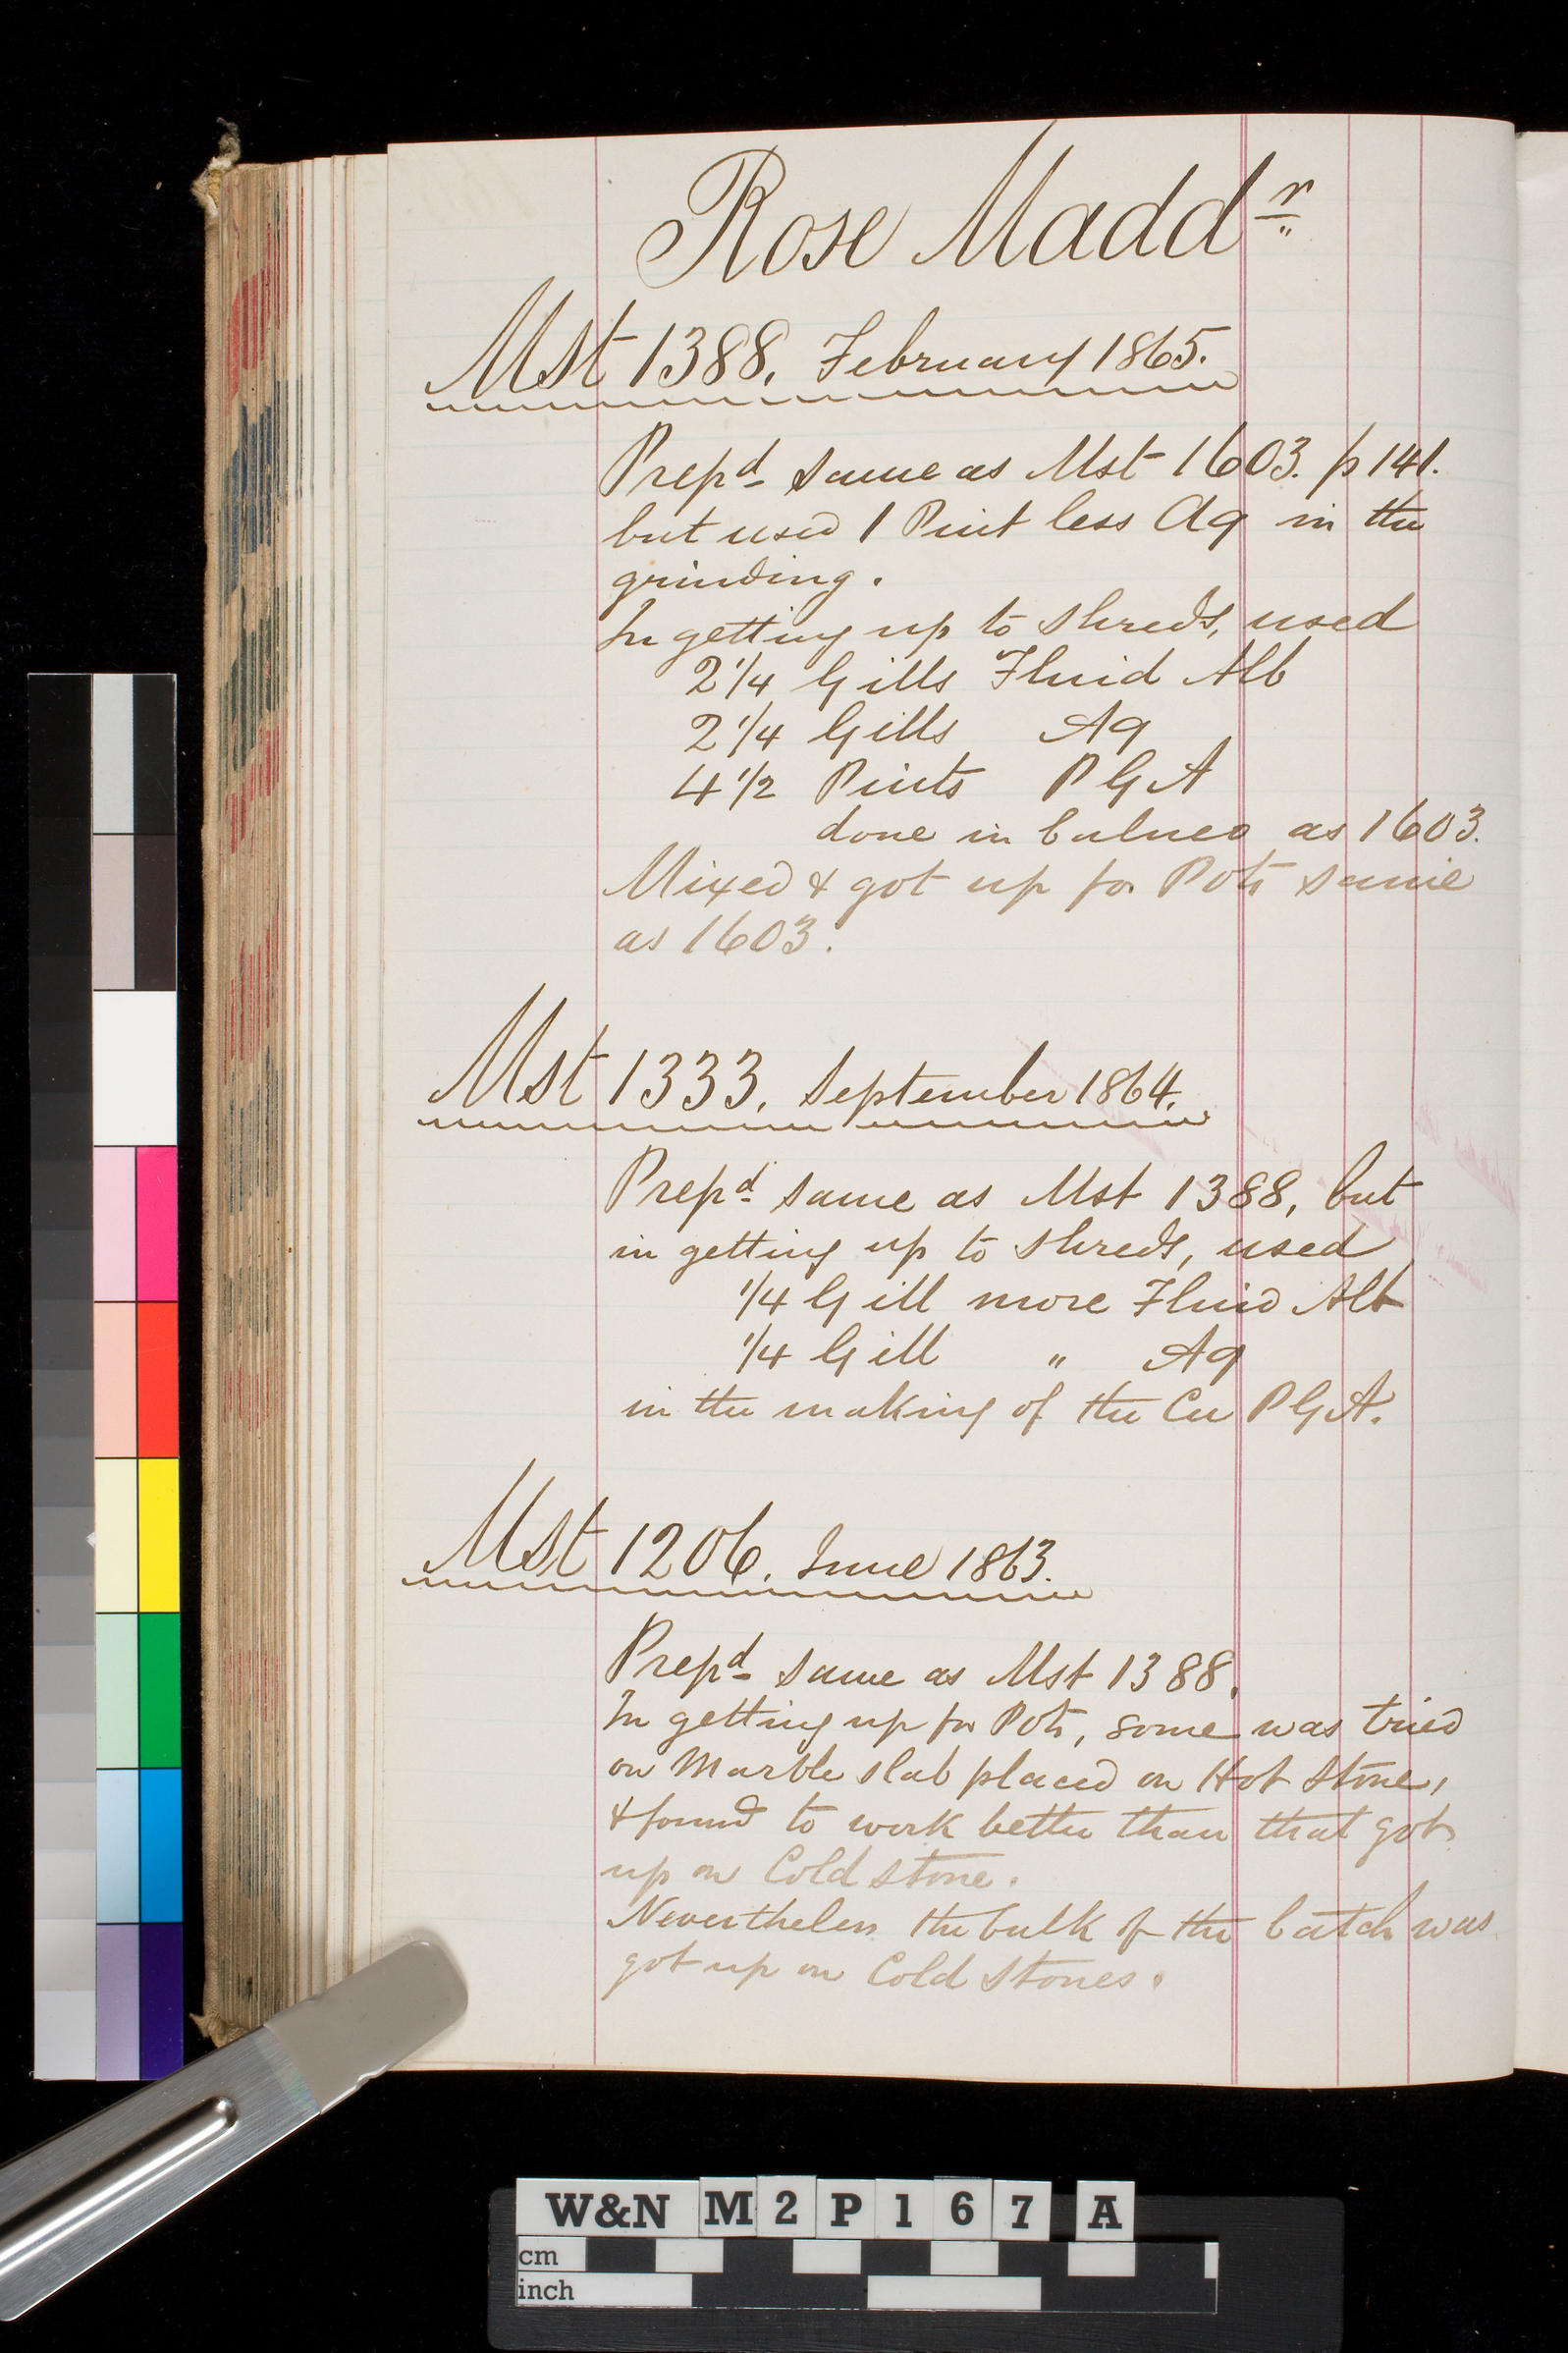 Rose Madd^r
Mst 1388, February 1865.
Prep^d same as Mst 1603. p 141.
but used 1 Pint less Aq in the
grinding.
In getting up to shreds, used
2 1/4 Gills Fluid Alb
2 1/4 Gills Aq
4 1/2 Pints P G A
done in balneo as 1603.
Mixed & got up for Pots same
as 1603.
Mst 1333. September 1864.
Prep^d same as Mst 1388, but
in getting up to shreds, used
1/4 Gill more Fluid Alb
1/4 Gill " Aq
in the making of the Cu P G A.
Mst 1206. June 1863.
Prep^d same as Mst 1388.
In getting up for Pots, some was tried
on Marble slab placed on Hot Stone,
& found to work better than that got
up on Cold stone.
Nevertheless the bulk of the batch was
got up on Cold Stones.
W&N M2P167 A
cm
inch